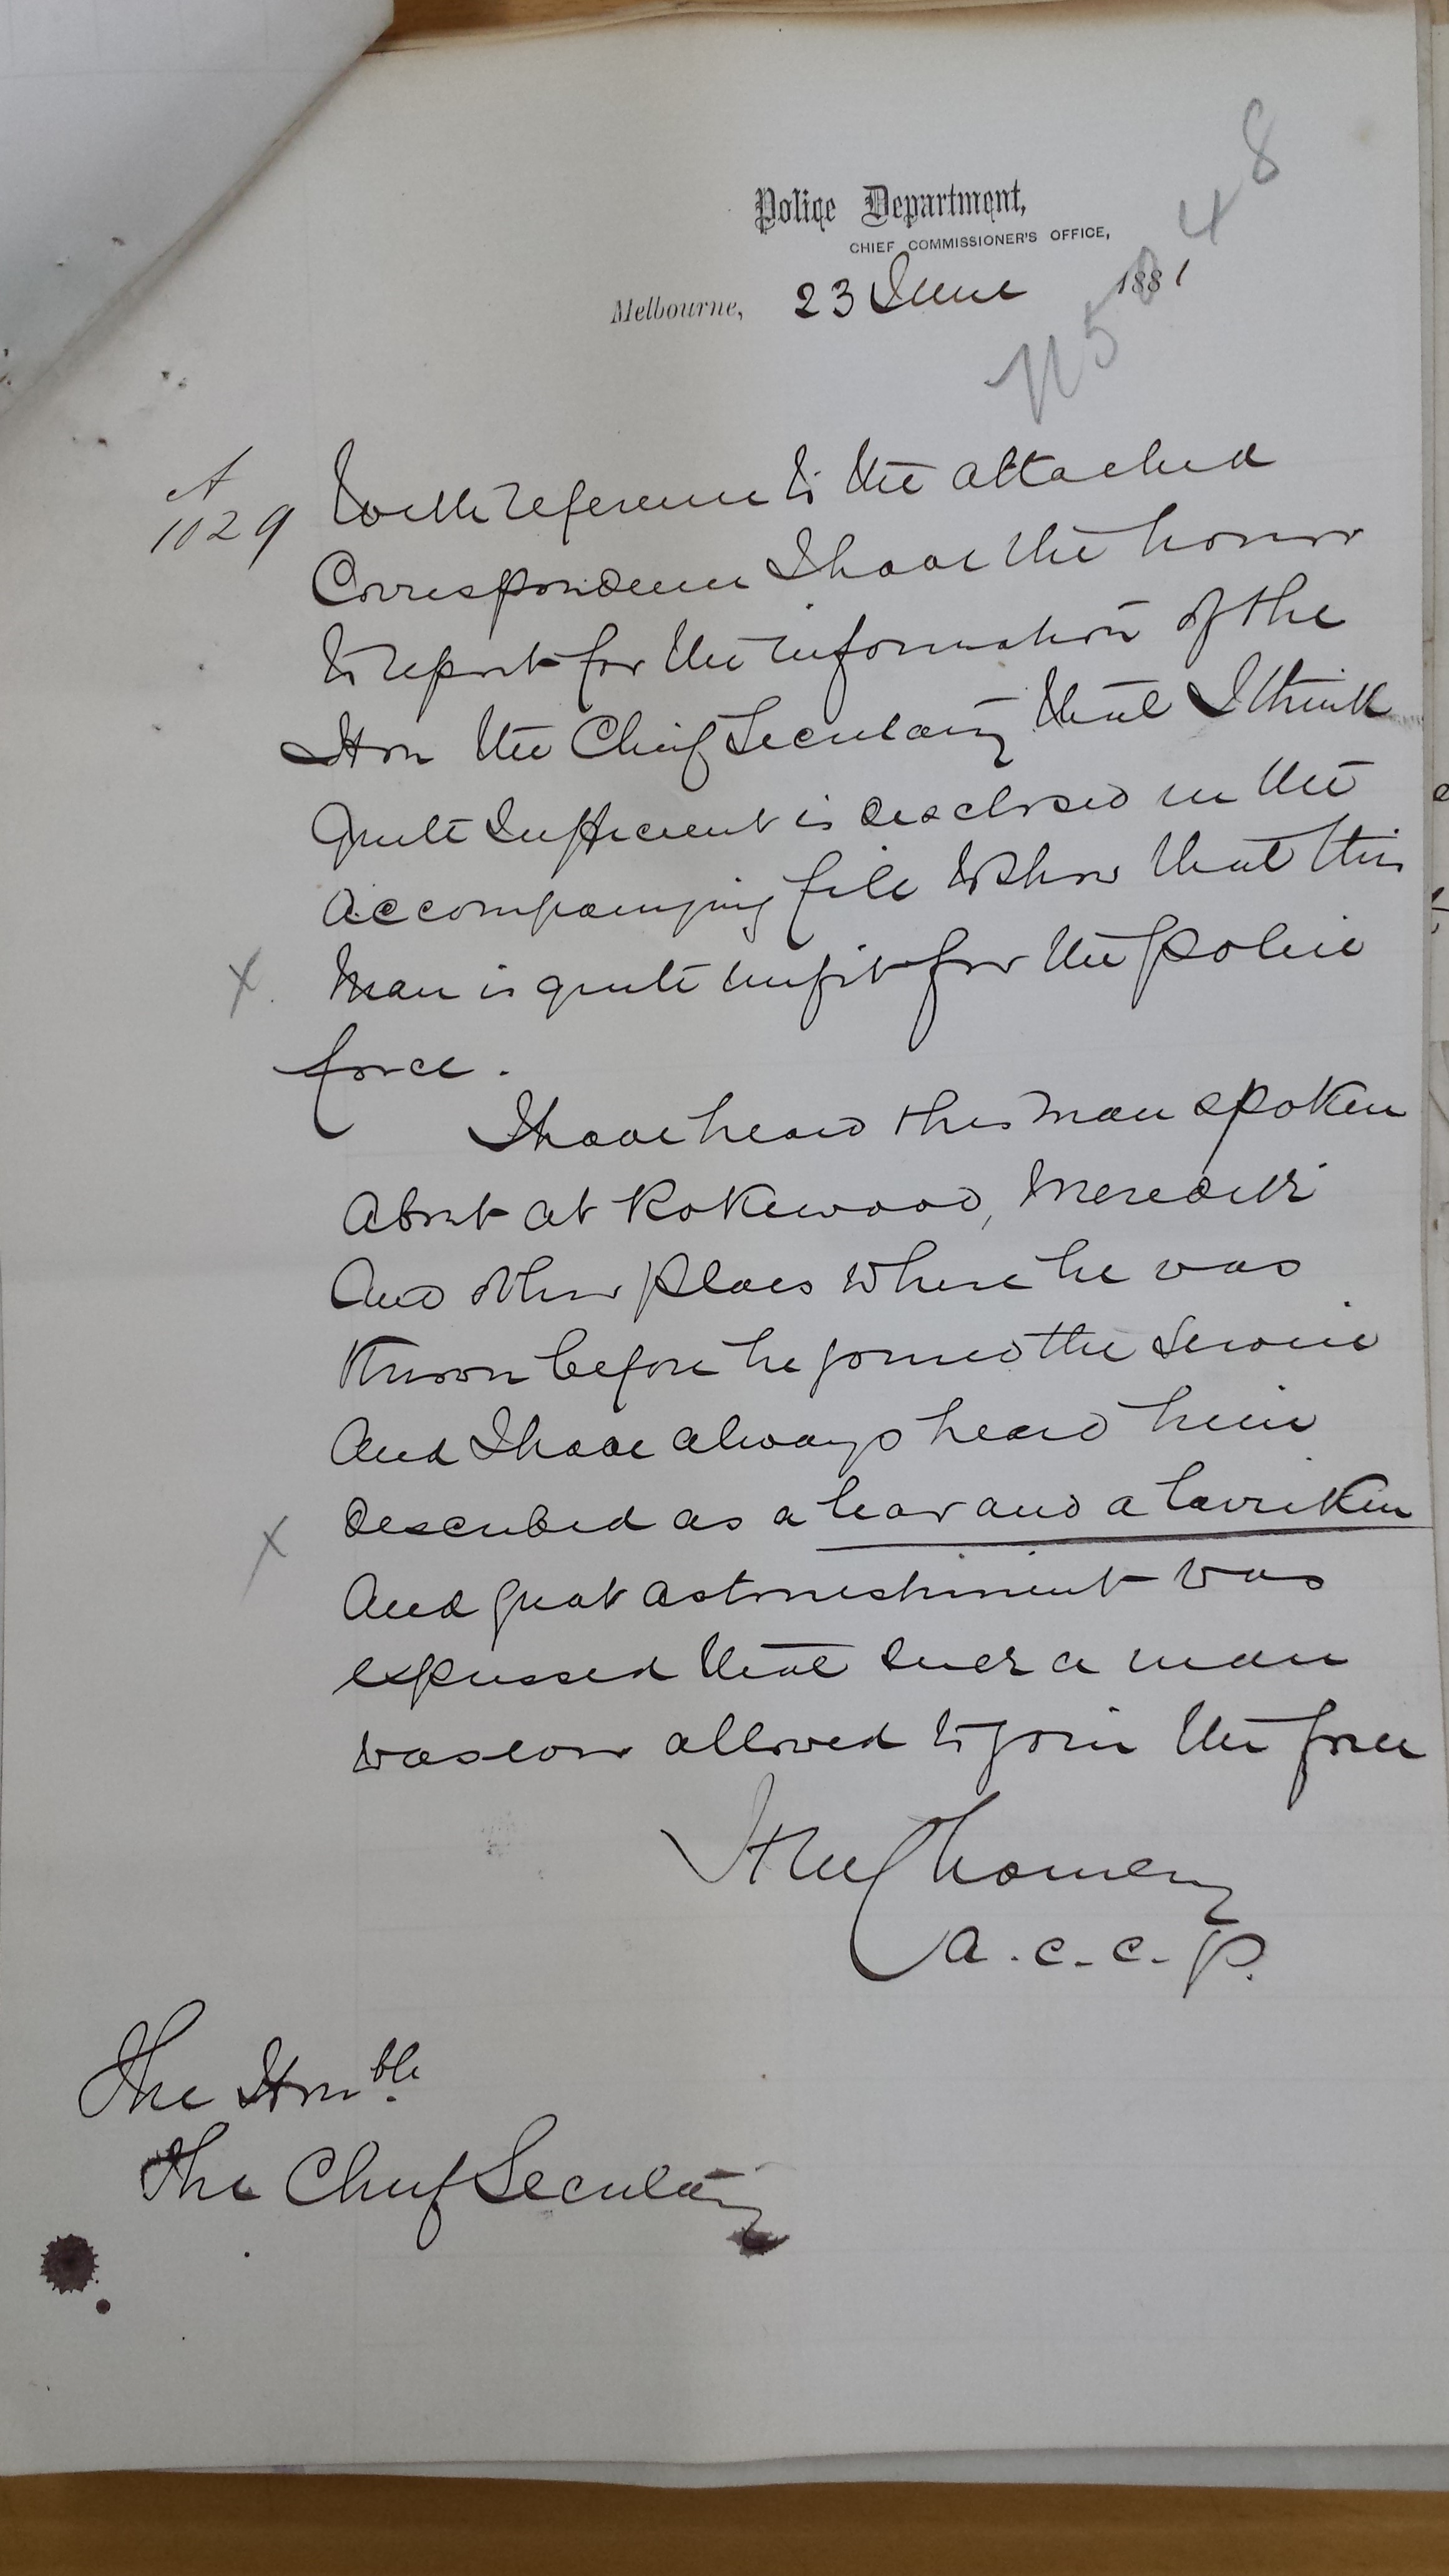 Police Department,
CHIEF COMMISSIONER'S OFFICE,
Melbourne, 23 June 1881
N5048
A
1029
With reference to the attached
Correspondence I have the honor
to report for the information of the
Hon the Chief Secretary that I think
quite sufficient is disclosed in the
accompanying file to show that this
X. man is quite unfit for the police
force.
I have heard this man spoken
about at Rokewood, Meredith
and other places where he was
known before he joined the service
and I have always heard him
X described as a liar and a larrikin
and great astonishment was
expressed that such a man
was ever allowed to join the force
H M Chomley
A.C.C.P.
The Honble.
The Chief Secretary